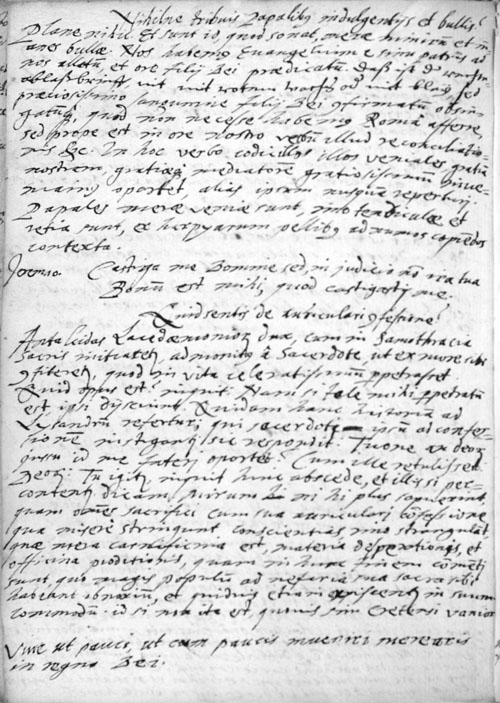 Nihilne tribuis Papalibus indulgentijs et bullis?
Plane nihil. Et sunt id, quod sonat, merae nimirum et in
anes bullae. Nos habemus Evangelium e sinu patris ad
nos allatum, et ore filij Dei praedicatum. Daß ist der
ablaßbrieff, nit mit rotem wachs od mit bley, sed
praeciosissimo sanguine filij Dei confirmatum
quod non necesse habemus Roma afferre,
sed prope est in ore nostro verbum illud reconciliatio-
nis &c. In hoc verbo, codicillos illos veniales, gratiam
nostram, gratiaeque mediatorem gratiosissimum
oportet, alias ipsum nusquam reperturi.
Papales merae veniae sunt, imo tendiculae et
retia sunt, ex harpyarum pellibus ad numos
contexta.
Jeremia. Castiga me Domine sed in judicio non in ira tua
Bonum est mihi, quod castigasti me.
Quid sentis de auriculari confessione?
Antalcidas Lacedaemoniorum dux, cum in Samothracia
sacris initiaretur, admonitus a Sacerdote ut ex more sibi
confiteretur, quod in vita sceleratissimum perpetrasset
Quid opus est? inquit. Nam si tale mihi perpetratum
est, ipsi dij sciunt. Quidam hanc historiam ad
Lysandrum referunt, qui sacerdoti ipsum ad confes-
sionem instiganti sic respondit: Tuone an deorum
jussu id me fateri oportet? Cum ille retulisset
Deorum: Tu igitur inquit hinc abscede, et illis si per-
contentur dicam. mihi plus
quam omnes sacrifici cum sua auriculari confessione
qua misere stringunt conscientias, imo strangulant,
quae mera carnificina est, materia desperationis, et
officina proditionis, quam in hunc finem
sunt, quo magis populum ad nefaria sua sacra sibi
haberent obnoxium, et quiduis etiam in suum
commodum. id si non ita est, quouis sim Cretensi vanior
Vive ut pauci, ut cum paucis inveniri merearis
in regno Dei.